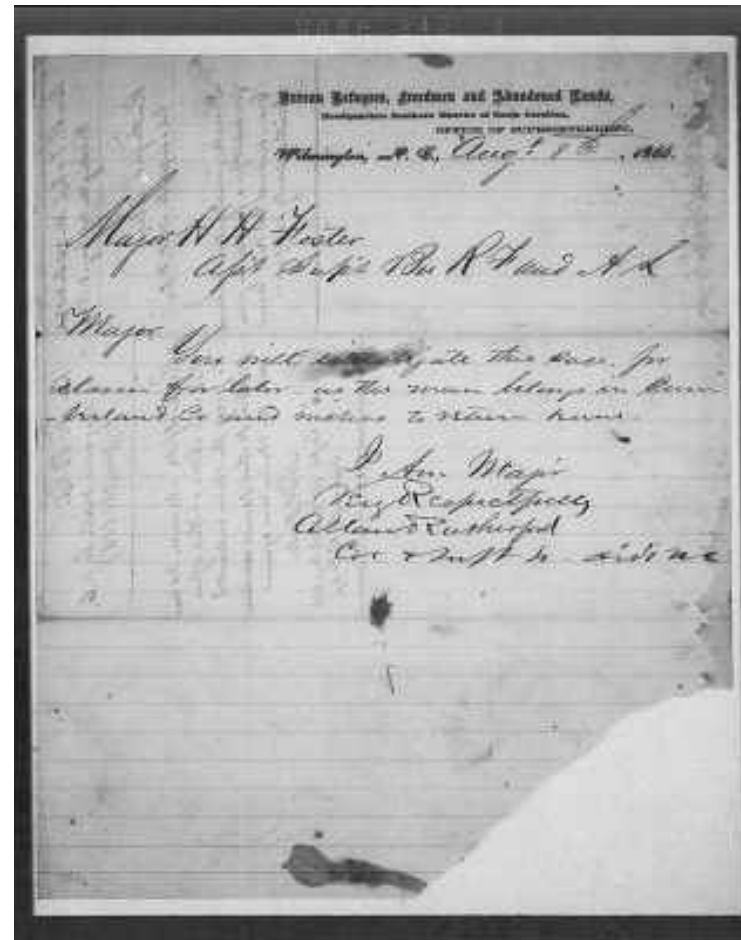 Bureau Refugees, Freedmen and Abandoned Lands,
Headquarters Southern District of North Carolina,
OFFICE OF SUPERINTENDENT,
Wilmington, N. C., Aug! 8th, 186
Major H H Foster
Ass't Sup't Bu R F and A L
Major
You will this case, for
claim for labor as this man belongs in Cum
berland Co and wishes to return home.
I Am Major
Very Respectfully
Allan Rutherford
Col & Supt So Dist N C